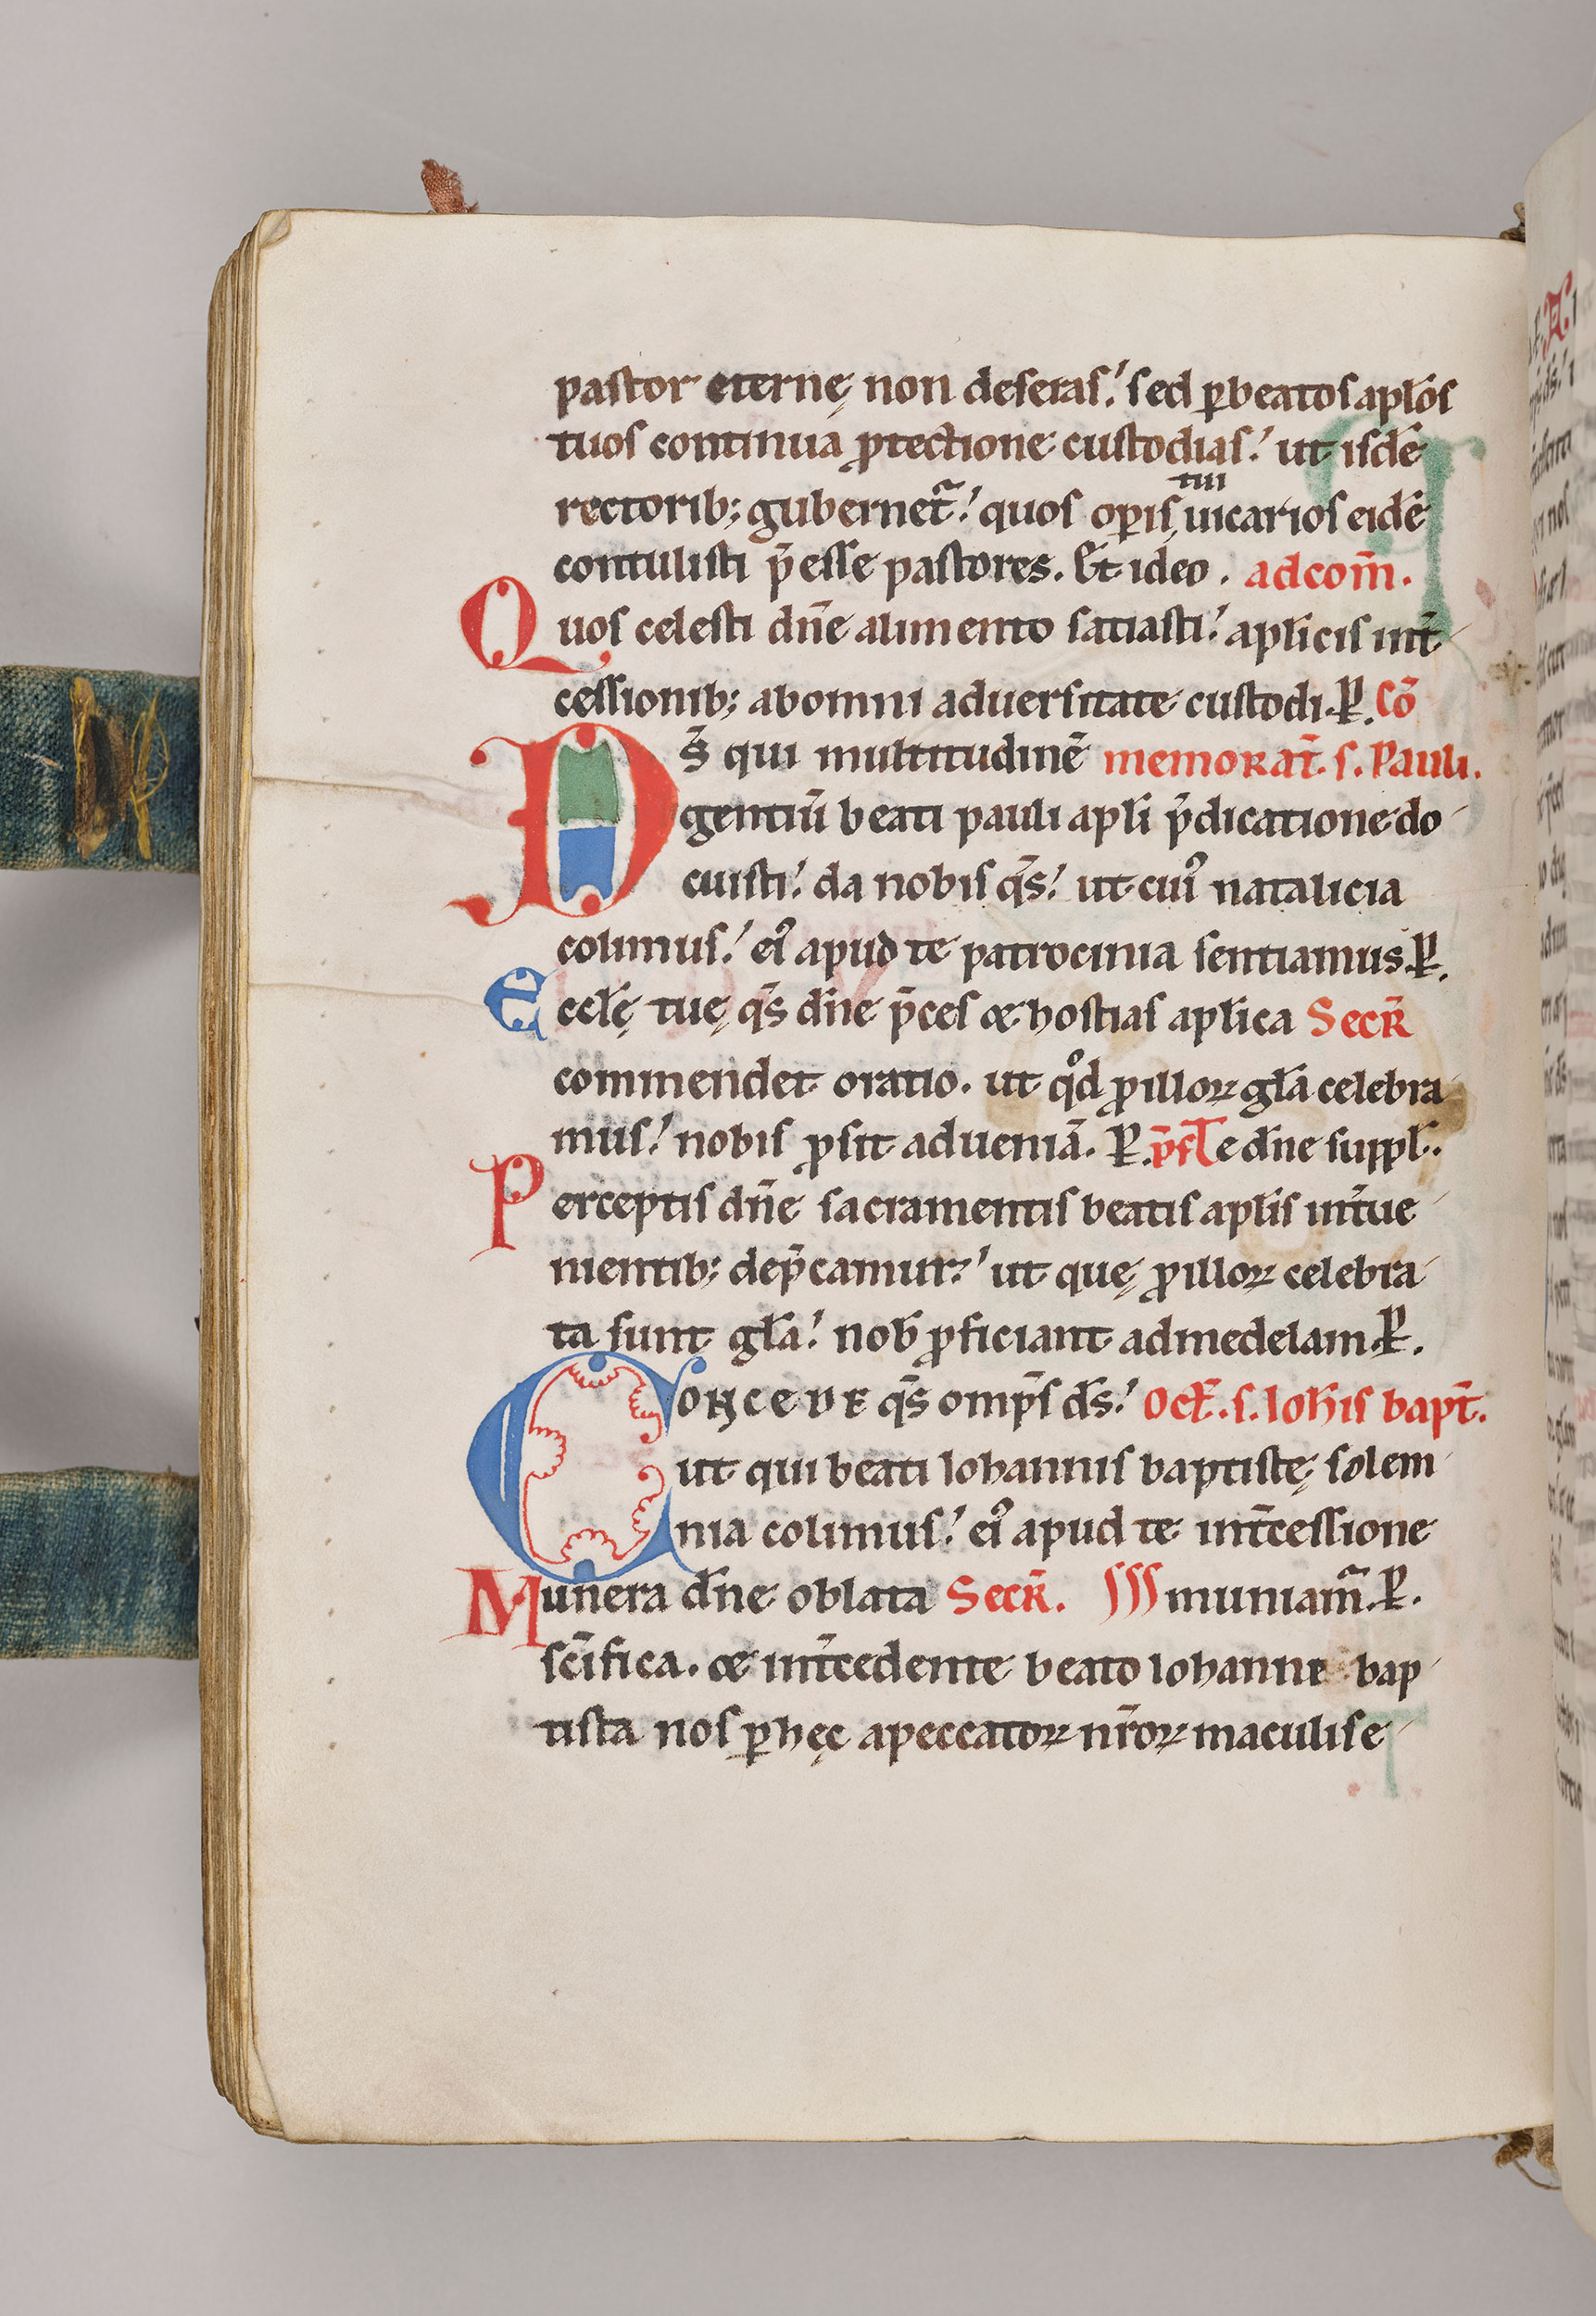 pastor eternę non deseras. sed ꝑ beatos apl̄os
tuos continua ꝓtectione custodias. ut isdē
rectorib; gubernet᷑. quos oꝑis tui uicarios eidē
contulisti p̄esse pastores. Et ideo. ad com̄.
Quos celesti dn̄e alimento satiasti. apl̄icis int̄
cessionib; ab omni aduersitate custodi. P̲. Cō
Ds̄ qui multitudinē memorat̄. s. Pauli.
gentiū beati pauli apl̄i p̄dicatione do
cuisti. da nobis qs̄. ut cuiꝰ natalicia
colimus. eiꝰ apud te patrocinia sentiamus. P̲.
Eccl̄ę tuę qs̄ dn̄e p̄ces & hostias apl̄ica Secr̄
commendet oratio. ut qͦd ꝓ illoꝝ gl̄a celebra
mus. nobis ꝓsit ad ueniā. P̲. p̄f Te dn̄e suppl̄.
Perceptis dn̄e sacramentis beatis apl̄is int̄ue
nientib; dep̄camur. ut quę ꝓ illoꝝ celebra
ta sunt gl̄a. nob̄ ꝓficiant ad medelam. P̲.
CONCEDE qs̄ omp̄s ds̄. Oct̄. s. Ioh̄is bapt̄.
ut qui beati Iohannis baptistę solem
nia colimus. eiꝰ apud te int̄cessione
Munera dn̄e oblata Secr̄. muniam᷑. P̲.
sc̄ifica. & int̄cedente beato Iohanne bap
tista nos ꝑ hęc a peccatoꝝ nr̄oꝝ maculis e